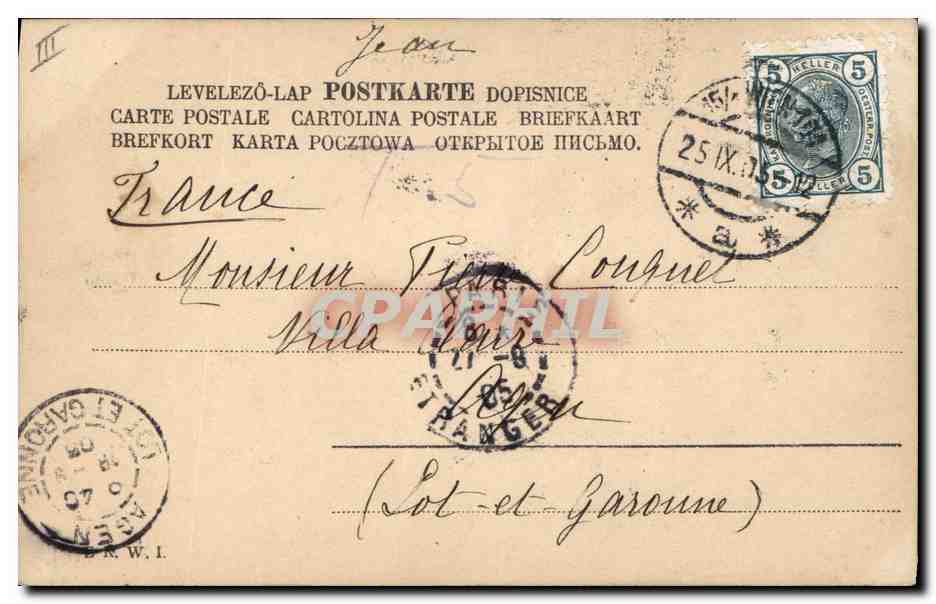 III
Jean
LEVELEZŐ-LAP POSTKARTE DOPISNICE
CARTE POSTALE CARTOLINA POSTALE BRIEFKAART
BREFKORT KARTA POCZTOWA ОТКРЫТОЕ ПИСЬМО.
5 HELLER 5
5 HELLER 5
WIEN
25 IX
* a *
T 5
France
Monsieur Pierre Couquet
Villa
Agen
(Lot-et-Garonne)
PARIS
27 -9
05
ETRANGER
CPAPHIL
AGEN
LOT ET GARONNE
05
B.K.W.I.